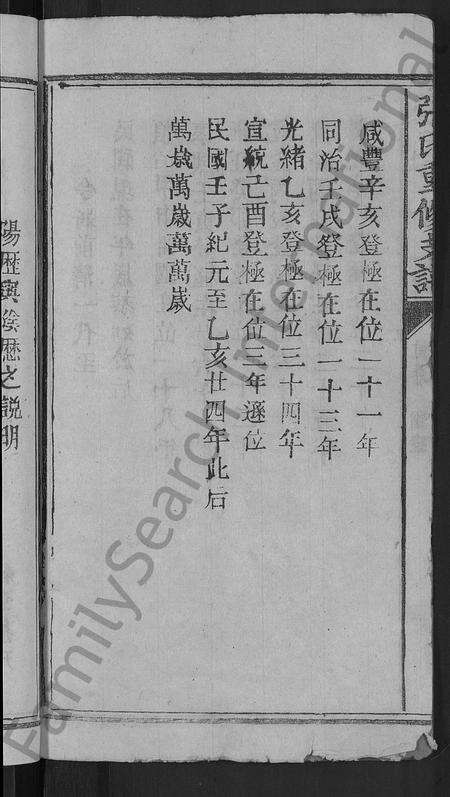 張氏重修支譜
咸豐辛亥登極在位一十一年
同治壬戌登極在位一十三年
光緒乙亥登極在位三十四年
宣統己酉登極在位三年遜位
民國壬子紀元至乙亥廿四年此后
萬歲萬歲萬萬歲
陽歷與陰歷之說明
FamilySearch International